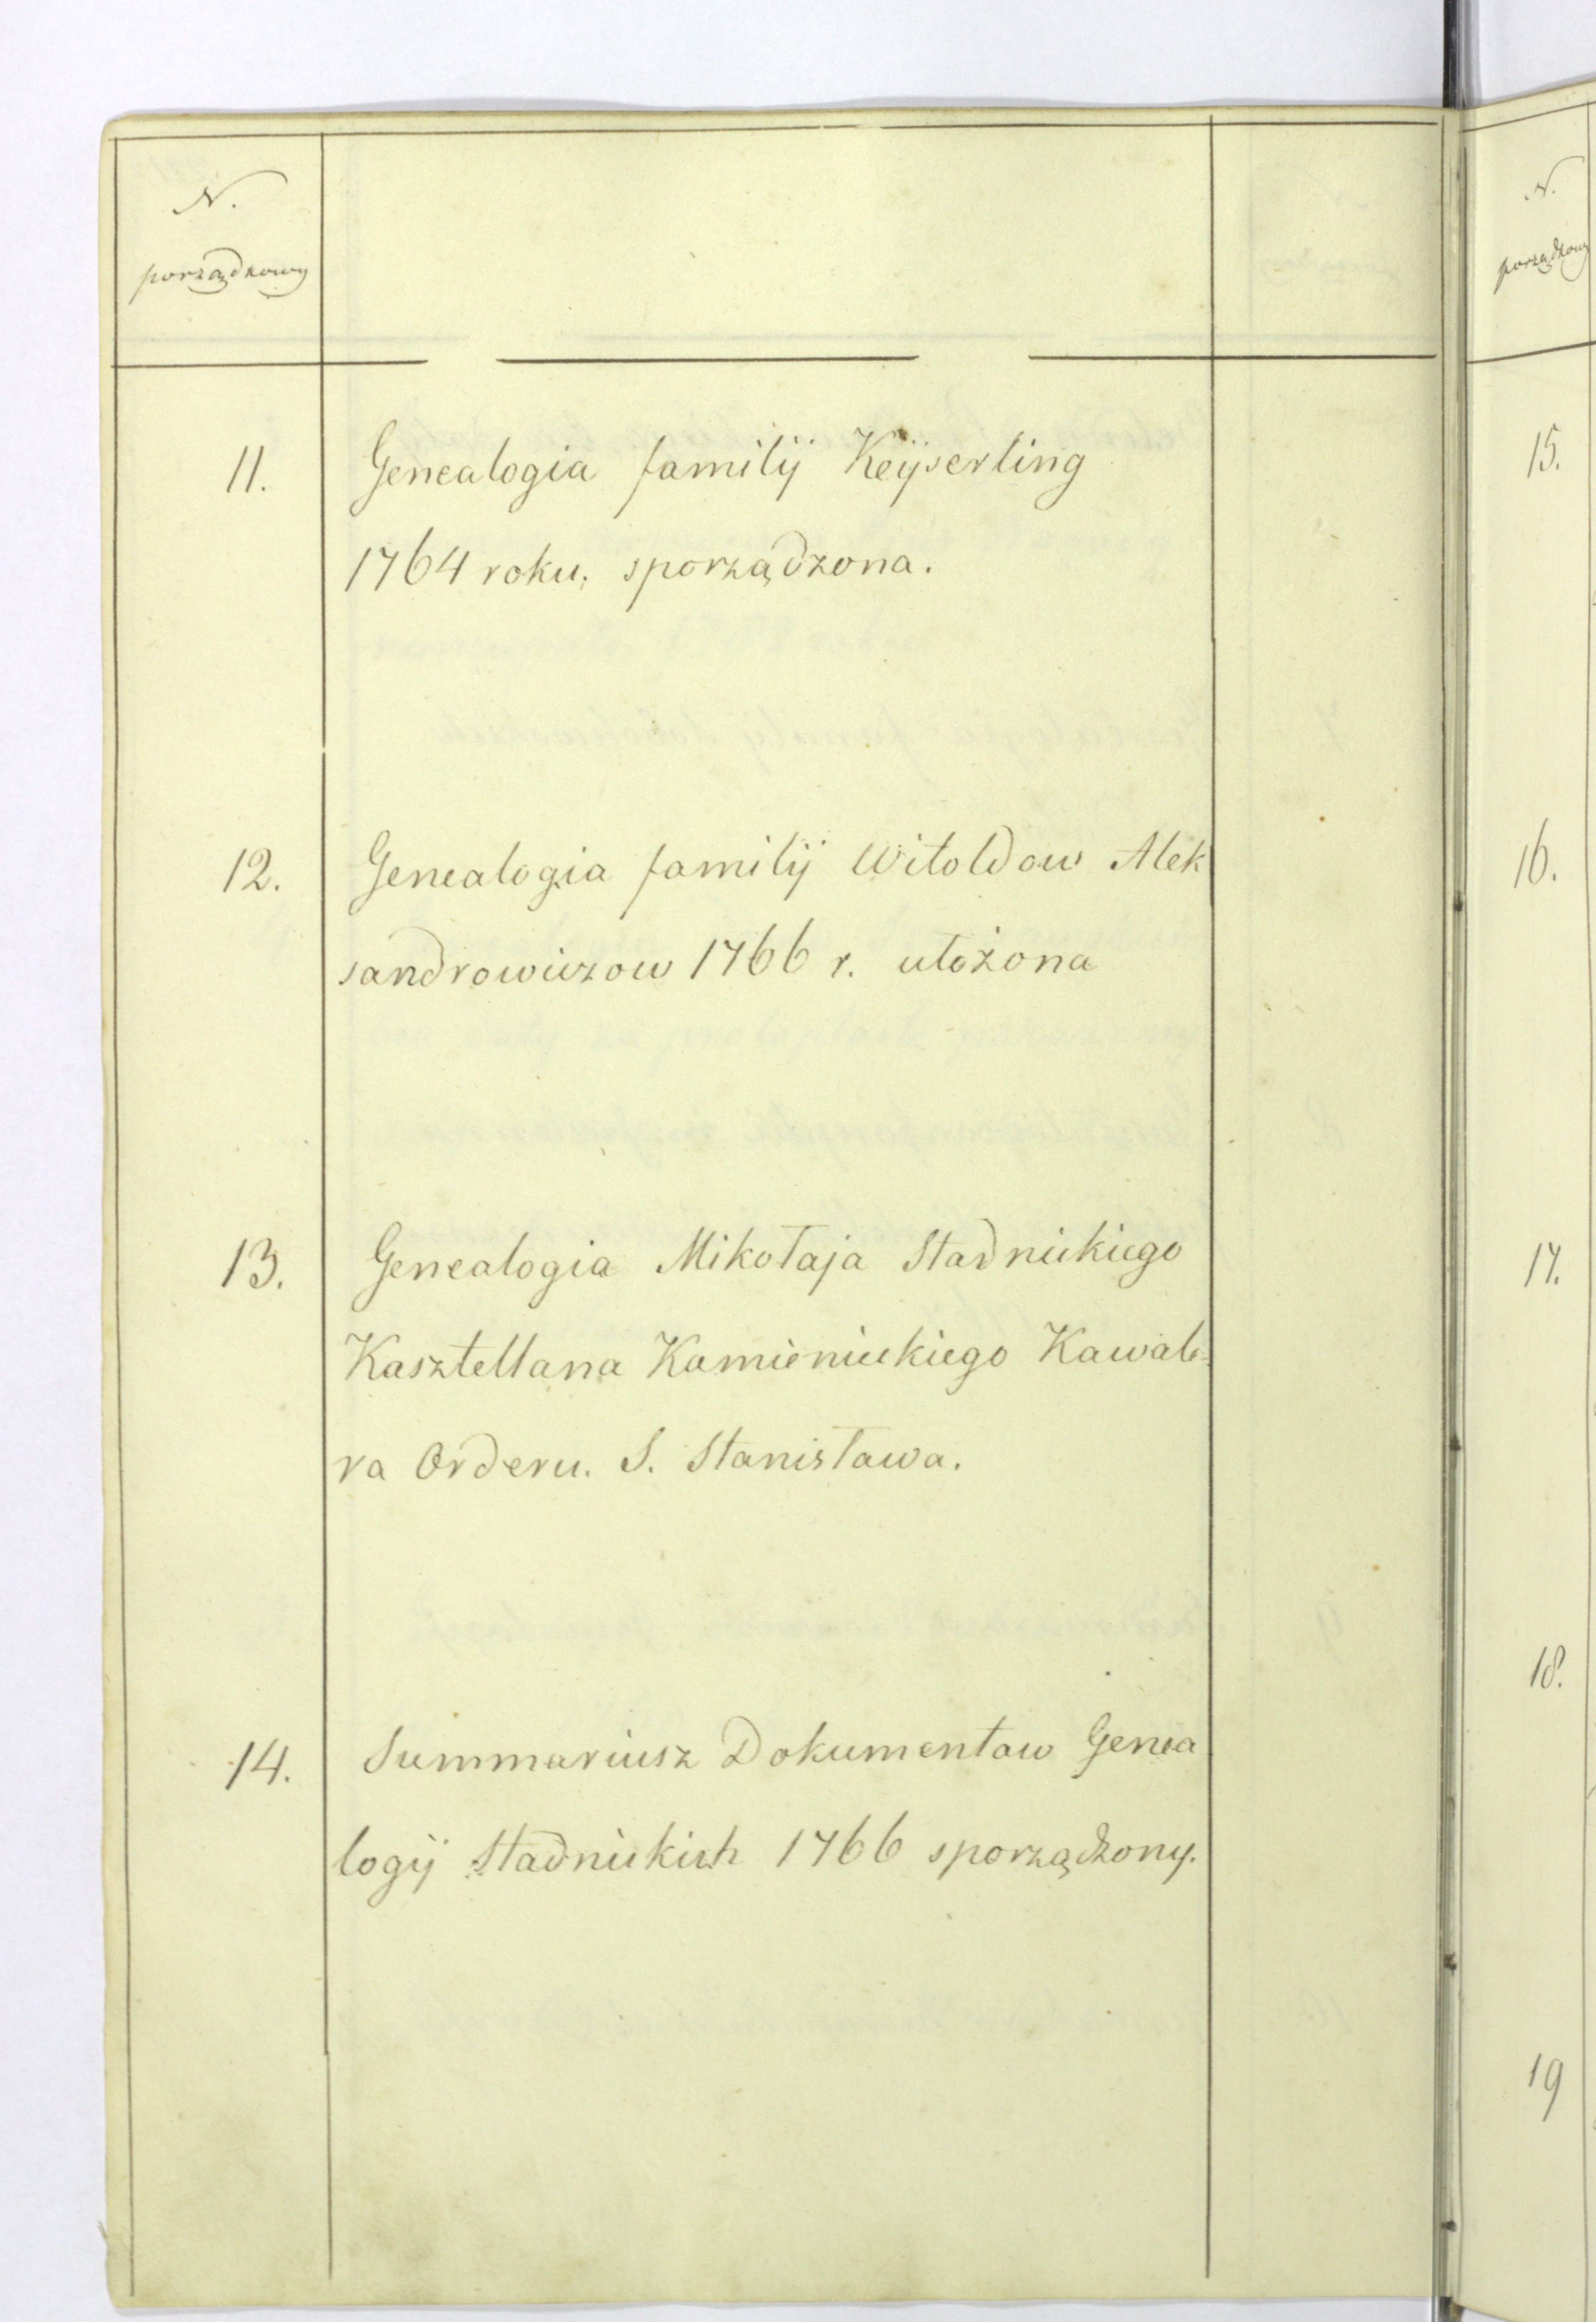 N.
porządkowy
11.
Genealogia familij Keÿserling
1764 roku, sporządzona.
12.
Genealogia familij Witoldow Alek
sandrowiczow 1766 r. ułożona
13.
Genealogia Mikołaja Stadnickiego
Kasztellana Kamienickiego Kawale-
ra Orderu. S. Stanisława.
14.
Summariusz Dokumentow Genea
logij Stadnickich 1766 sporządzony.
N.
porządkowy
15.
16.
17.
18.
19